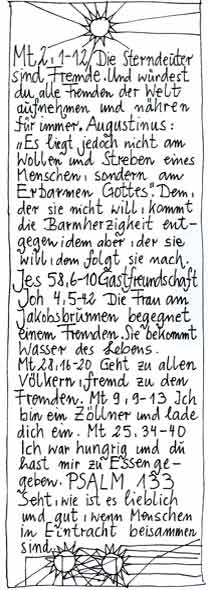 Mt 2,1-12/Die Sterndeuter
sind Fremde. Und würdest
du alle Fremden der Welt
aufnehmen und nähren
für immer. Augustinus:
„Es liegt jedoch nicht am
Wollen und Streben eines
Menschen, sondern am
Erbarmen Gottes" Dem,
der sie nicht will, kommt
die Barmherzigkeit ent-
gegen, dem aber, der sie
will, dem folgt sie nach.
Jes 58,6-10 Gastfreundschaft
Joh 4,5-42 Die Frau am
Jakobsbrunnen begegnet
einem Fremden. Sie bekommt
Wasser des Lebens.
Mt 28,16-20 Geht zu allen
Völkern, fremd zu den
Fremden. Mt 9,9-13 Ich
bin ein Zöllner und lade
dich ein. Mt 25,34-40
Ich war hungrig und du
hast mir zu Essen ge-
geben. PSALM 133
Seht, wie ist es lieblich
und gut, wenn Menschen
in Eintracht beisammen
sind.